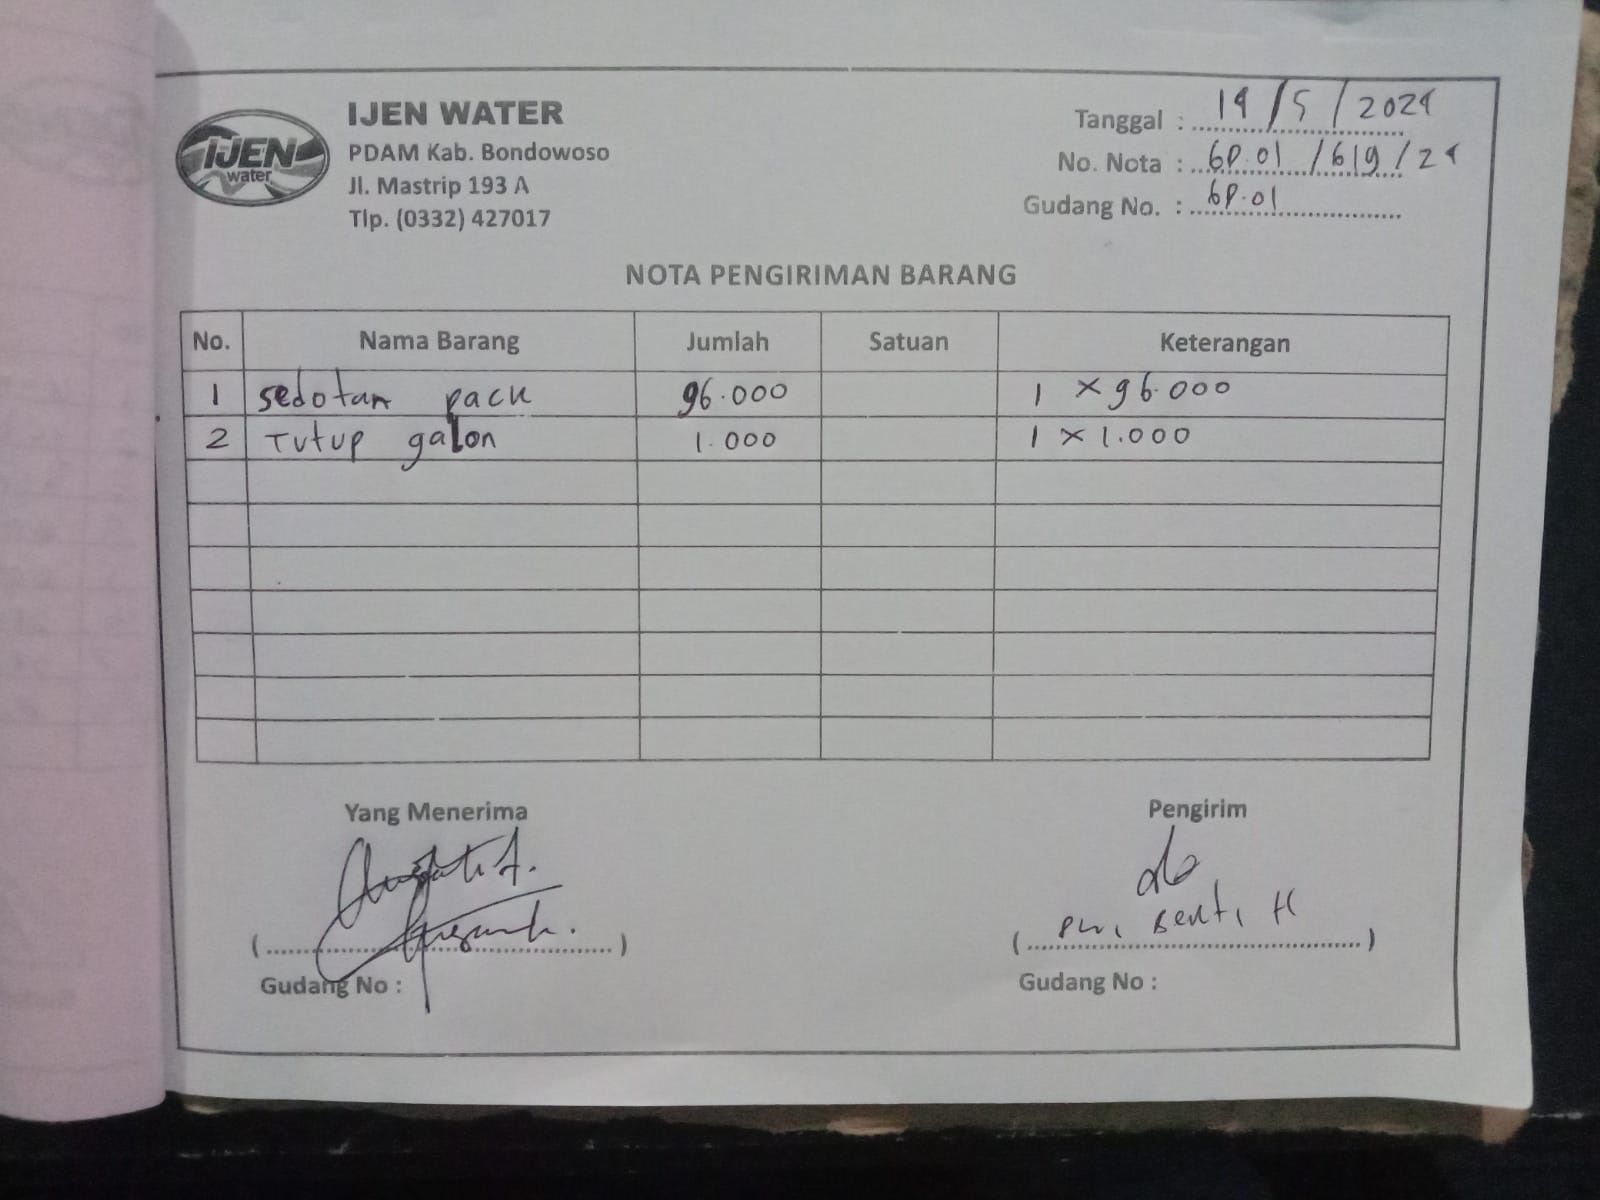 IJEN
water
IJEN WATER
PDAM Kab. Bondowoso
Jl. Mastrip 193 A
Tlp. (0332) 427017
Tanggal : 14 / 5 / 2024
No. Nota : 6P.01 / 619 / 24
Gudang No. : 6P.01
NOTA PENGIRIMAN BARANG
No. Nama Barang Jumlah Satuan Keterangan
1 sedotan pack 96.000 1 x 96.000
2 Tutup galon 1.000 1 x 1.000
Yang Menerima Pengirim
Gudang No : Gudang No :